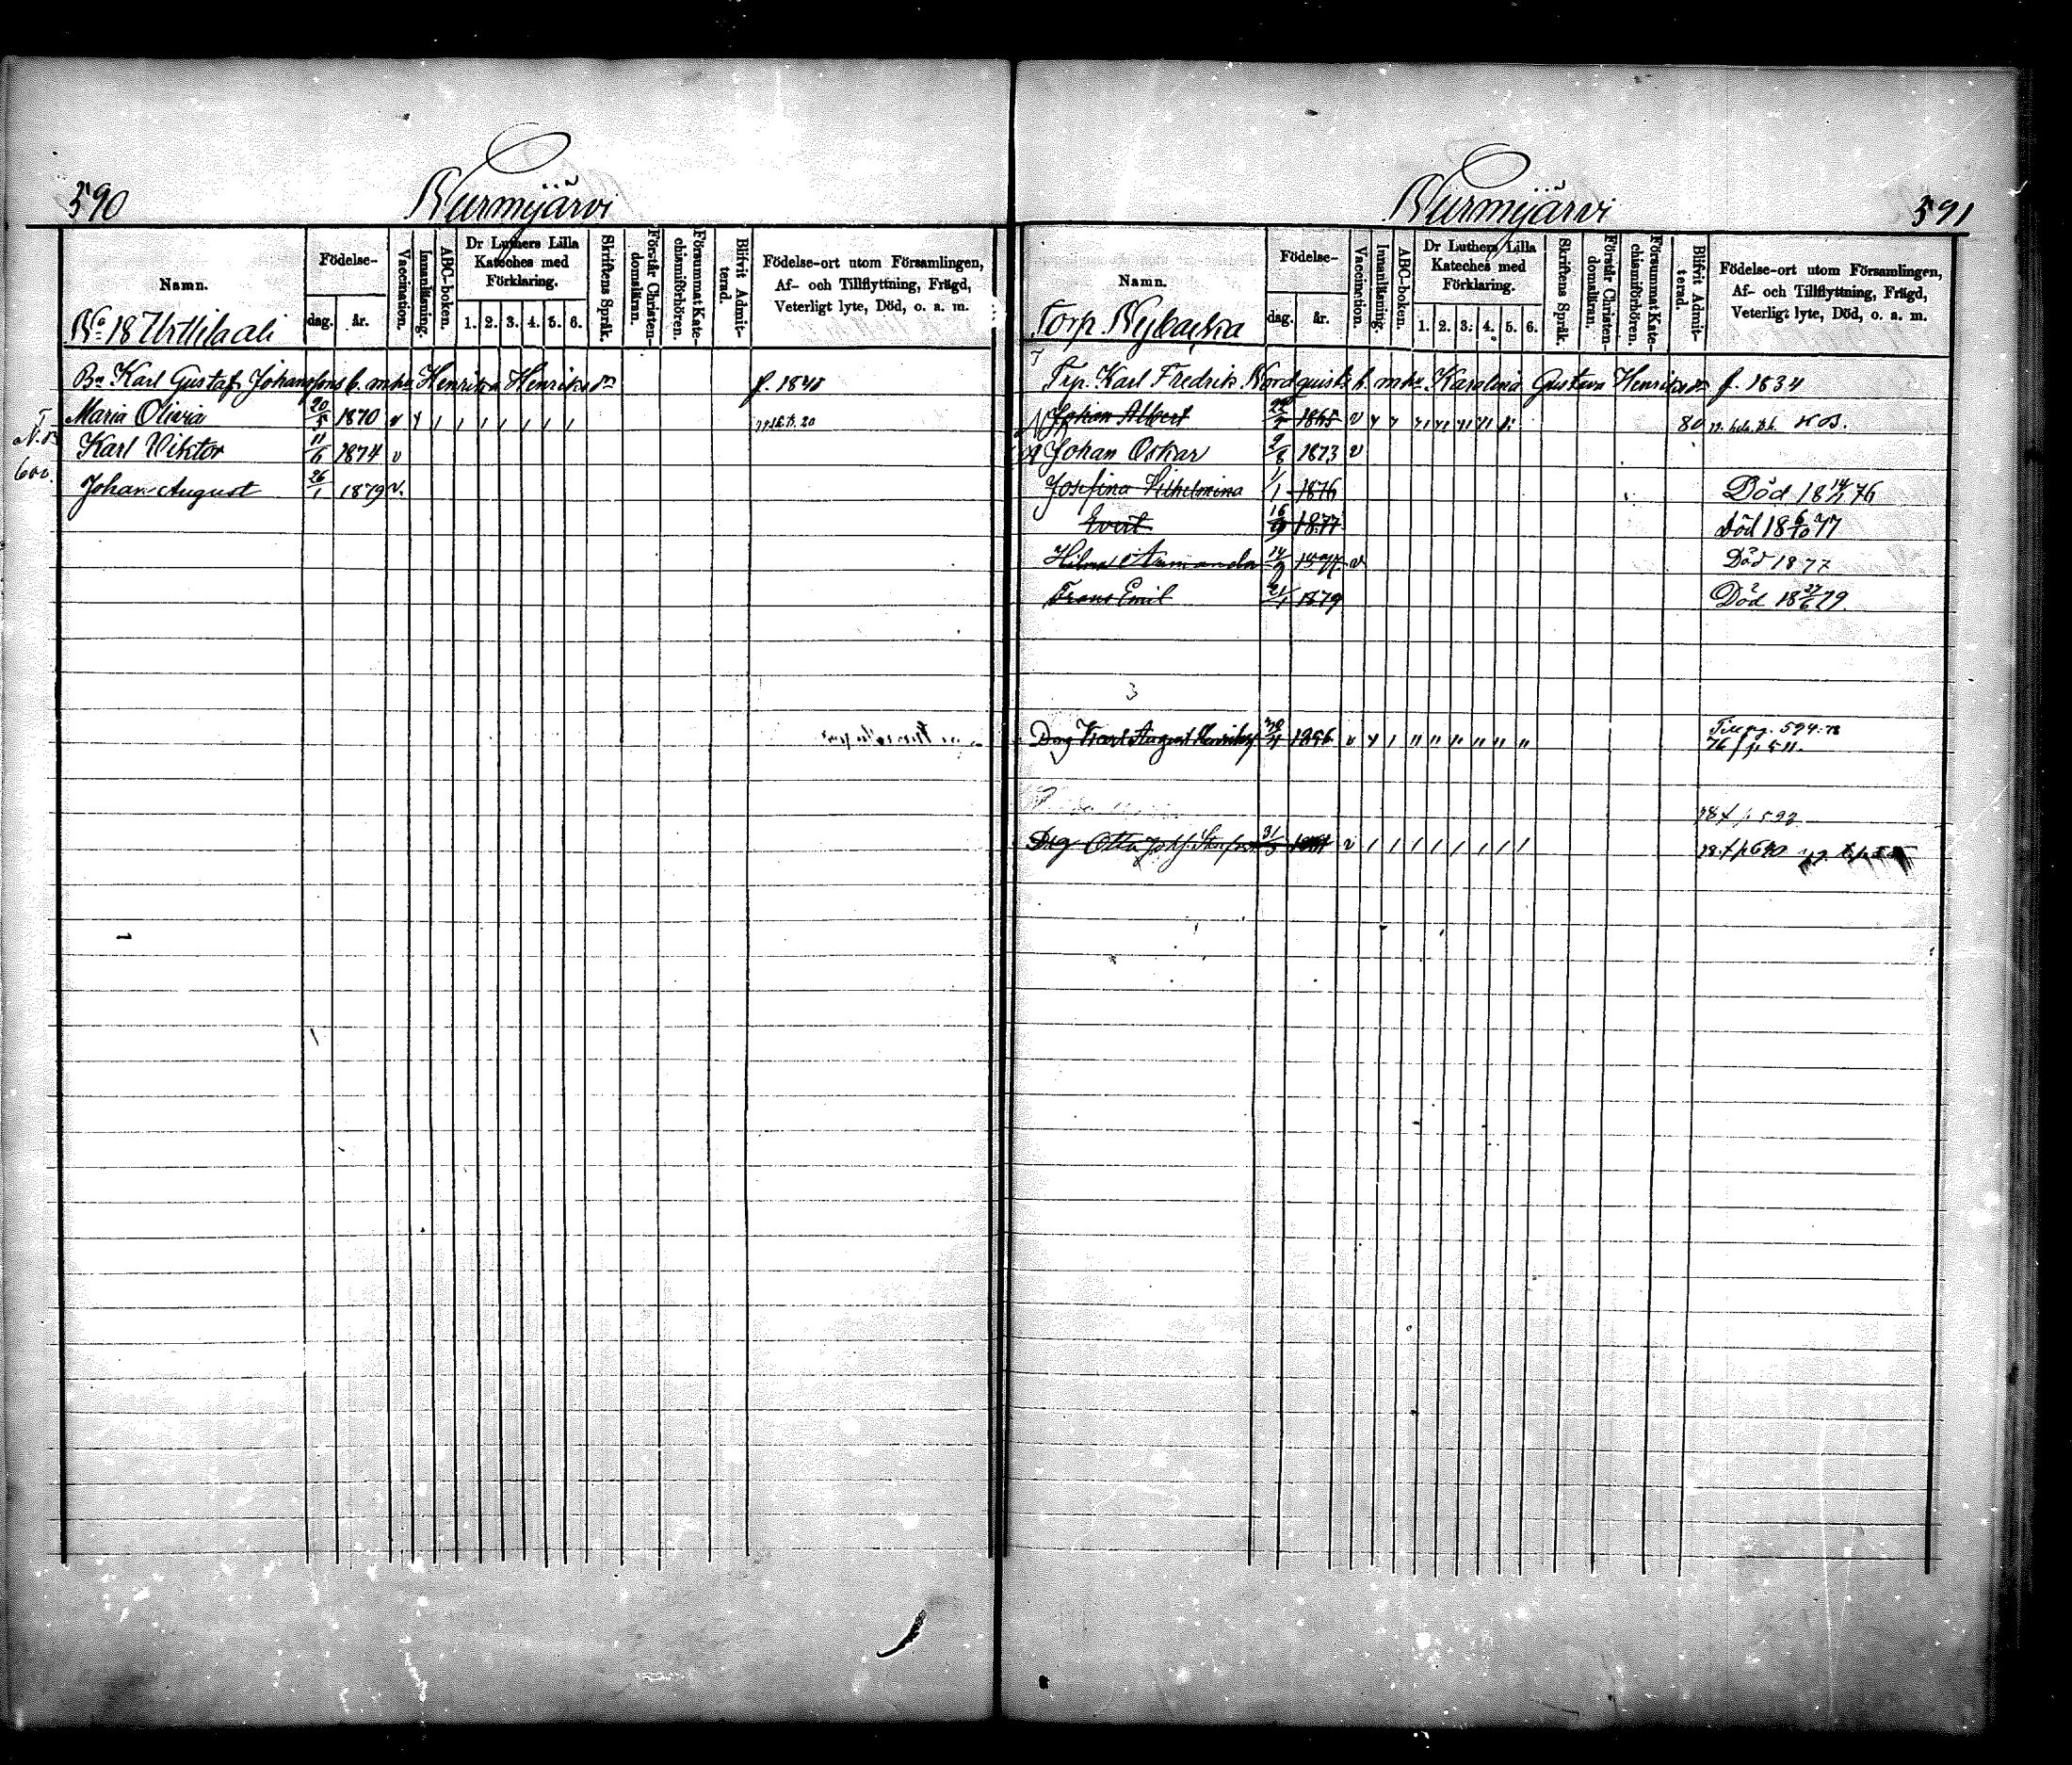 590
Nurmijärvi
Namn.
Födelse-
dag.
år.
Vaccination.
Innanläsning.
ABC-boken.
Dr Luthers Lilla
Kateches med
Förklaring.
1. 2. 3. 4. 5. 6.
Skriftens Språk.
Förstår Christen-
domsläran.
Försummat Kate-
chismiförhören.
Blifvit Admit-
terad.
Födelse-ort utom Församlingen,
Af- och Tillflyttning, Frägd,
Veterligt lyte, Död, o. a. m.
No 18 Uttilaali
Bn Karl Gustaf Johanssons b. m. h. Henrika Henriksdr f. 1848
Maria Olivia 20/5 1870 v
Karl Viktor 11/6 1874 v
600.
Johan August 26/1 1879 v.
Nurmijärvi
591
Namn.
Födelse-
dag.
år.
Vaccination.
Innanläsning.
ABC-boken.
Dr Luthers Lilla
Kateches med
Förklaring.
1. 2. 3. 4. 5. 6.
Skriftens Språk.
Förstår Christen-
domsläran.
Försummat Kate-
chismiförhören.
Blifvit Admit-
terad.
Födelse-ort utom Församlingen,
Af- och Tillflyttning, Frägd,
Veterligt lyte, Död, o. a. m.
Torp Nybacka
Trp. Karl Fredrik Nordquists b. m. h. Karolina Gustava Henriksdr f. 1834
Johan Albert 1865 v 80
Johan Oskar 2/8 1873 v
Josefina Vilhelmina 1/1 1876 Död 18 14/1 76
Evert 16/9 1877 Död 18 6/10 77
Hilma Amanda v Död 1877
Frans Emil 21/1 1879 Död 18 27/6 79
3
Drg Karl August Henriksf 1856 v 594
76 f p. 511.
78 f p. 592
Drg Otto 31/3 v 78 f p.